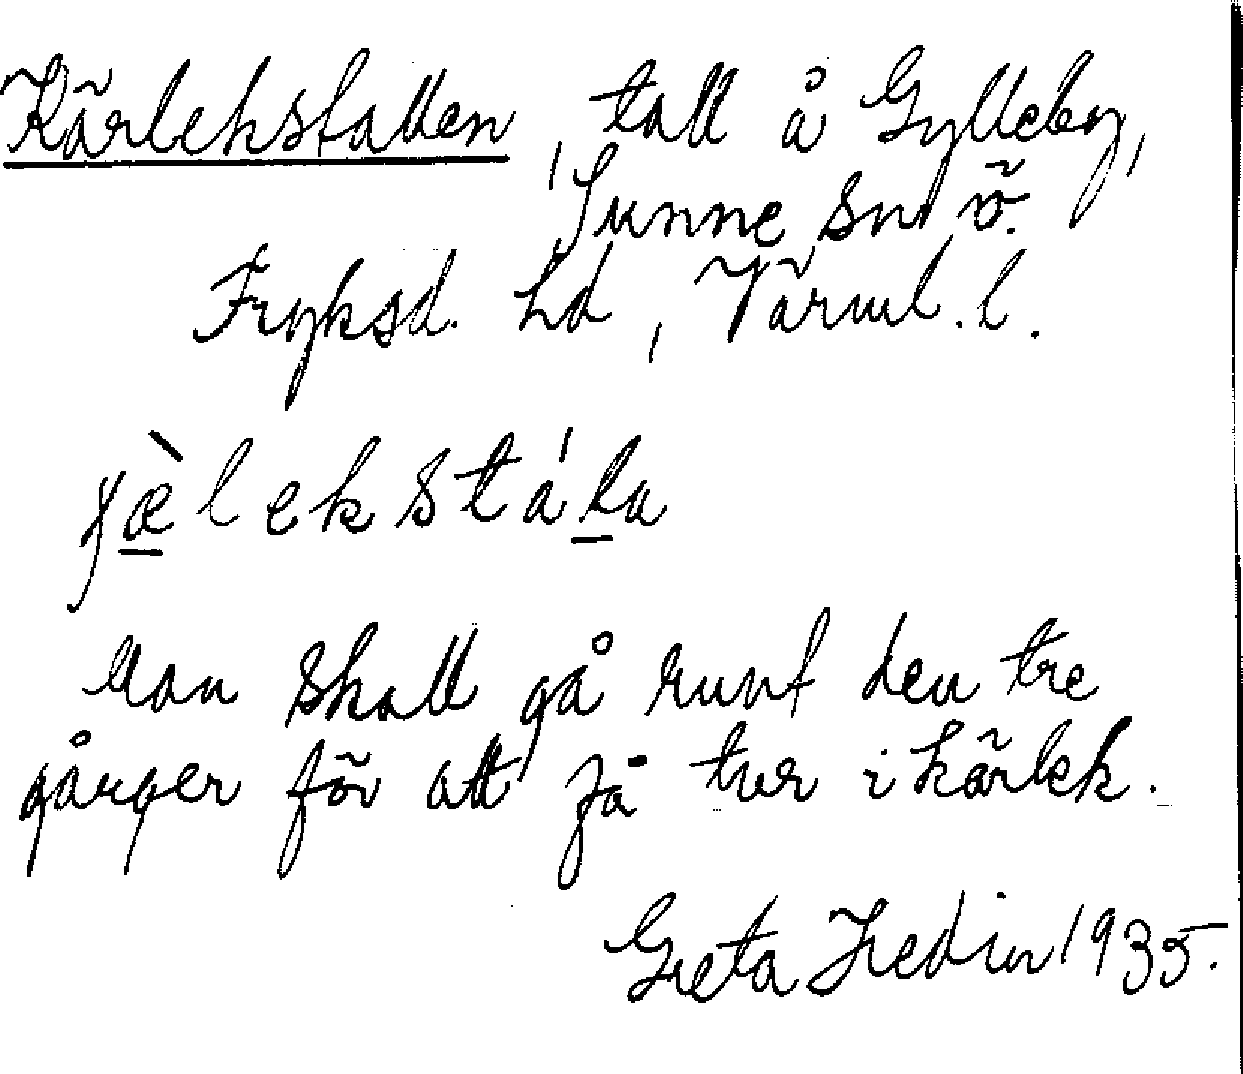 Kärlekstallen, tall å Gylleby,
Sunne sn ö.
Fryksd. hd, Värml. l.
Man skall gå runt den tre
gånger för att få tur i kärlek.
Greta Hedin 1935.